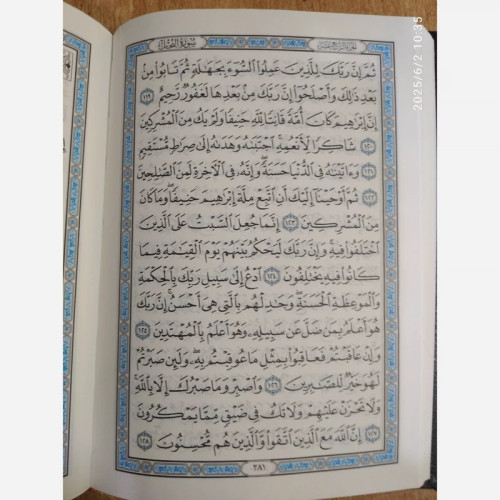 سورة النحل
الجزء الرابع عشر
ثُمَّ إِنَّ رَبَّكَ لِلَّذِينَ عَمِلُوا۟ ٱلسُّوٓءَ بِجَهَـٰلَةٍ ثُمَّ تَابُوا۟ مِنۢ
بَعْدِ ذَٰلِكَ وَأَصْلَحُوٓا۟ إِنَّ رَبَّكَ مِنۢ بَعْدِهَا لَغَفُورٌ رَّحِيمٌ ١١٩
إِنَّ إِبْرَٰهِيمَ كَانَ أُمَّةً قَانِتًا لِّلَّهِ حَنِيفًا وَلَمْ يَكُ مِنَ ٱلْمُشْرِكِينَ
١٢٠ شَاكِرًا لِّأَنْعُمِهِ ۚ ٱجْتَبَىٰهُ وَهَدَىٰهُ إِلَىٰ صِرَٰطٍ مُّسْتَقِيمٍ
١٢١ وَءَاتَيْنَـٰهُ فِى ٱلدُّنْيَا حَسَنَةً ۖ وَإِنَّهُۥ فِى ٱلْـَٔاخِرَةِ لَمِنَ ٱلصَّـٰلِحِينَ
١٢٢ ثُمَّ أَوْحَيْنَآ إِلَيْكَ أَنِ ٱتَّبِعْ مِلَّةَ إِبْرَٰهِيمَ حَنِيفًا ۖ وَمَا كَانَ
مِنَ ٱلْمُشْرِكِينَ ١٢٣ إِنَّمَا جُعِلَ ٱلسَّبْتُ عَلَى ٱلَّذِينَ
ٱخْتَلَفُوا۟ فِيهِ ۚ وَإِنَّ رَبَّكَ لَيَحْكُمُ بَيْنَهُمْ يَوْمَ ٱلْقِيَـٰمَةِ فِيمَا
كَانُوا۟ فِيهِ يَخْتَلِفُونَ ١٢٤ ٱدْعُ إِلَىٰ سَبِيلِ رَبِّكَ بِٱلْحِكْمَةِ
وَٱلْمَوْعِظَةِ ٱلْحَسَنَةِ ۖ وَجَـٰدِلْهُم بِٱلَّتِى هِىَ أَحْسَنُ ۚ إِنَّ رَبَّكَ
هُوَ أَعْلَمُ بِمَن ضَلَّ عَن سَبِيلِهِۦ ۖ وَهُوَ أَعْلَمُ بِٱلْمُهْتَدِينَ ١٢٥
وَإِنْ عَاقَبْتُمْ فَعَاقِبُوا۟ بِمِثْلِ مَا عُوقِبْتُم بِهِۦ ۖ وَلَئِن صَبَرْتُمْ
لَهُوَ خَيْرٌ لِّلصَّـٰبِرِينَ ١٢٦ وَٱصْبِرْ وَمَا صَبْرُكَ إِلَّا بِٱللَّهِ ۚ
وَلَا تَحْزَنْ عَلَيْهِمْ وَلَا تَكُ فِى ضَيْقٍ مِّمَّا يَمْكُرُونَ
١٢٧ إِنَّ ٱللَّهَ مَعَ ٱلَّذِينَ ٱتَّقَوا۟ وَّٱلَّذِينَ هُم مُّحْسِنُونَ ١٢٨
٢٨١
2025/6/2 10:35